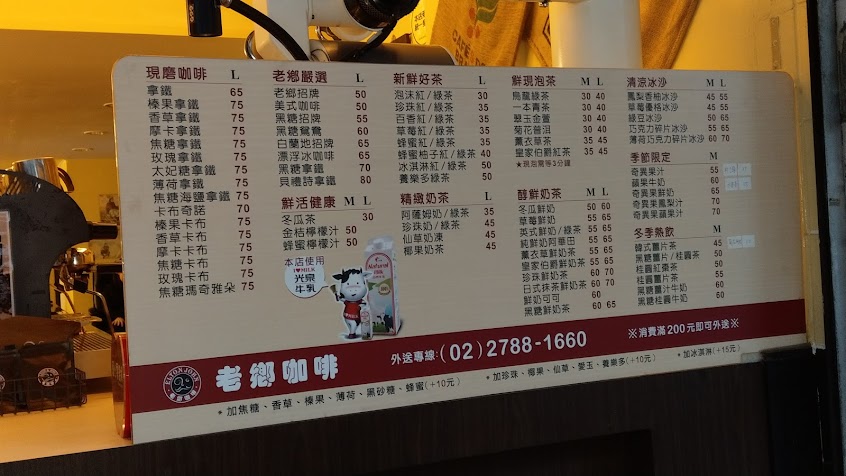 現磨咖啡 L
拿鐵 65
榛果拿鐵 75
香草拿鐵 75
摩卡拿鐵 75
焦糖拿鐵 75
玫瑰拿鐵 75
太妃糖拿鐵 75
薄荷拿鐵 75
焦糖海鹽拿鐵 75
卡布奇諾 70
榛果卡布 75
香草卡布 75
摩卡卡布 75
焦糖卡布 75
玫瑰卡布 75
焦糖瑪奇雅朵 75
老鄉嚴選 L
老鄉招牌 50
美式咖啡 50
黑糖招牌 55
黑糖鴛鴦 60
白蘭地招牌 65
漂浮冰咖啡 65
黑糖拿鐵 70
貝禮詩拿鐵 80
鮮活健康 M L
冬瓜茶 30
金桔檸檬汁 50
蜂蜜檸檬汁 50
本店使用
I♥MILK
光泉
牛乳
新鮮好茶 L
泡沫紅/綠茶 35
珍珠紅/綠茶 35
百香紅/綠茶 35
草莓紅/綠茶 35
蜂蜜紅/綠茶 35
蜂蜜柚子紅/綠茶 40
冰淇淋紅/綠茶 50
養樂多綠茶 50
精緻奶茶 L
阿薩姆奶/綠茶 35
珍珠奶/綠茶 45
仙草奶凍 45
椰果奶茶 45
鮮現泡茶 M L
烏龍綠茶 30 40
一本青茶 30 40
翠玉金萱 30 40
菊花普洱 30 40
薰衣草茶 35 45
皇家伯爵紅茶 35 45
★現泡需等3分鐘
醇鮮奶茶 M L
冬瓜鮮奶 50 60
草莓鮮奶 55 65
英式鮮奶/綠茶 55 65
純鮮奶阿華田 55 65
薰衣草鮮奶茶 55 65
皇家伯爵鮮奶茶 55 65
珍珠鮮奶茶 60 70
日式抹茶鮮奶茶 60 70
鮮奶可可 60
黑糖鮮奶茶 60 65
清涼冰沙 M L
鳳梨香柚冰沙 45 55
草莓優格冰沙 45 55
綠豆冰沙 50 65
巧克力碎片冰沙 55 65
薄荷巧克力碎片冰沙 60 70
季節限定 M
奇異果汁 55
蘋果牛奶 60
奇異果鮮奶 65
奇異果鳳梨汁 70
奇異果蘋果汁 70
冬季熱飲 M
韓式薑片茶 45
黑糖薑片/桂圓茶 50
桂圓紅棗茶 50
桂圓薑片茶 55
黑糖薑汁牛奶 60
黑糖桂圓牛奶 60
老鄉咖啡
外送專線:(02)2788-1660
※消費滿200元即可外送※
* 加焦糖、香草、榛果、薄荷、黑砂糖、蜂蜜(+10元)
* 加珍珠、椰果、仙草、愛玉、養樂多(+10元)
* 加冰淇淋(+15元)